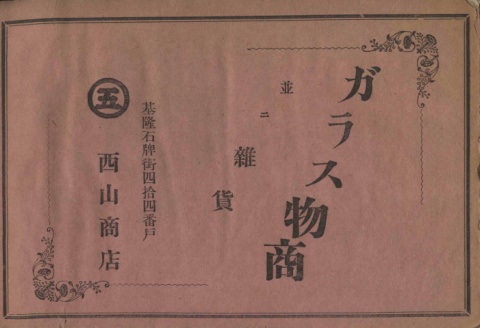 ガラス物商
並ニ雜貨
基隆石牌街四拾四番戸
五
西山商店